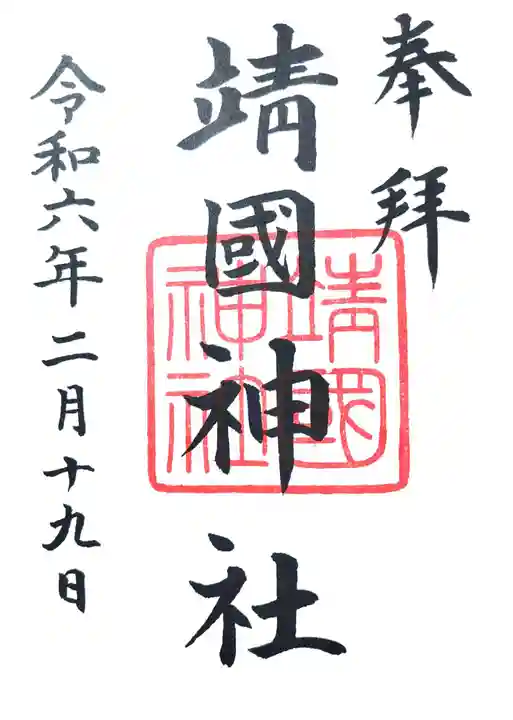 奉拜
靖國神社
靖國
神社
令和六年二月十九日